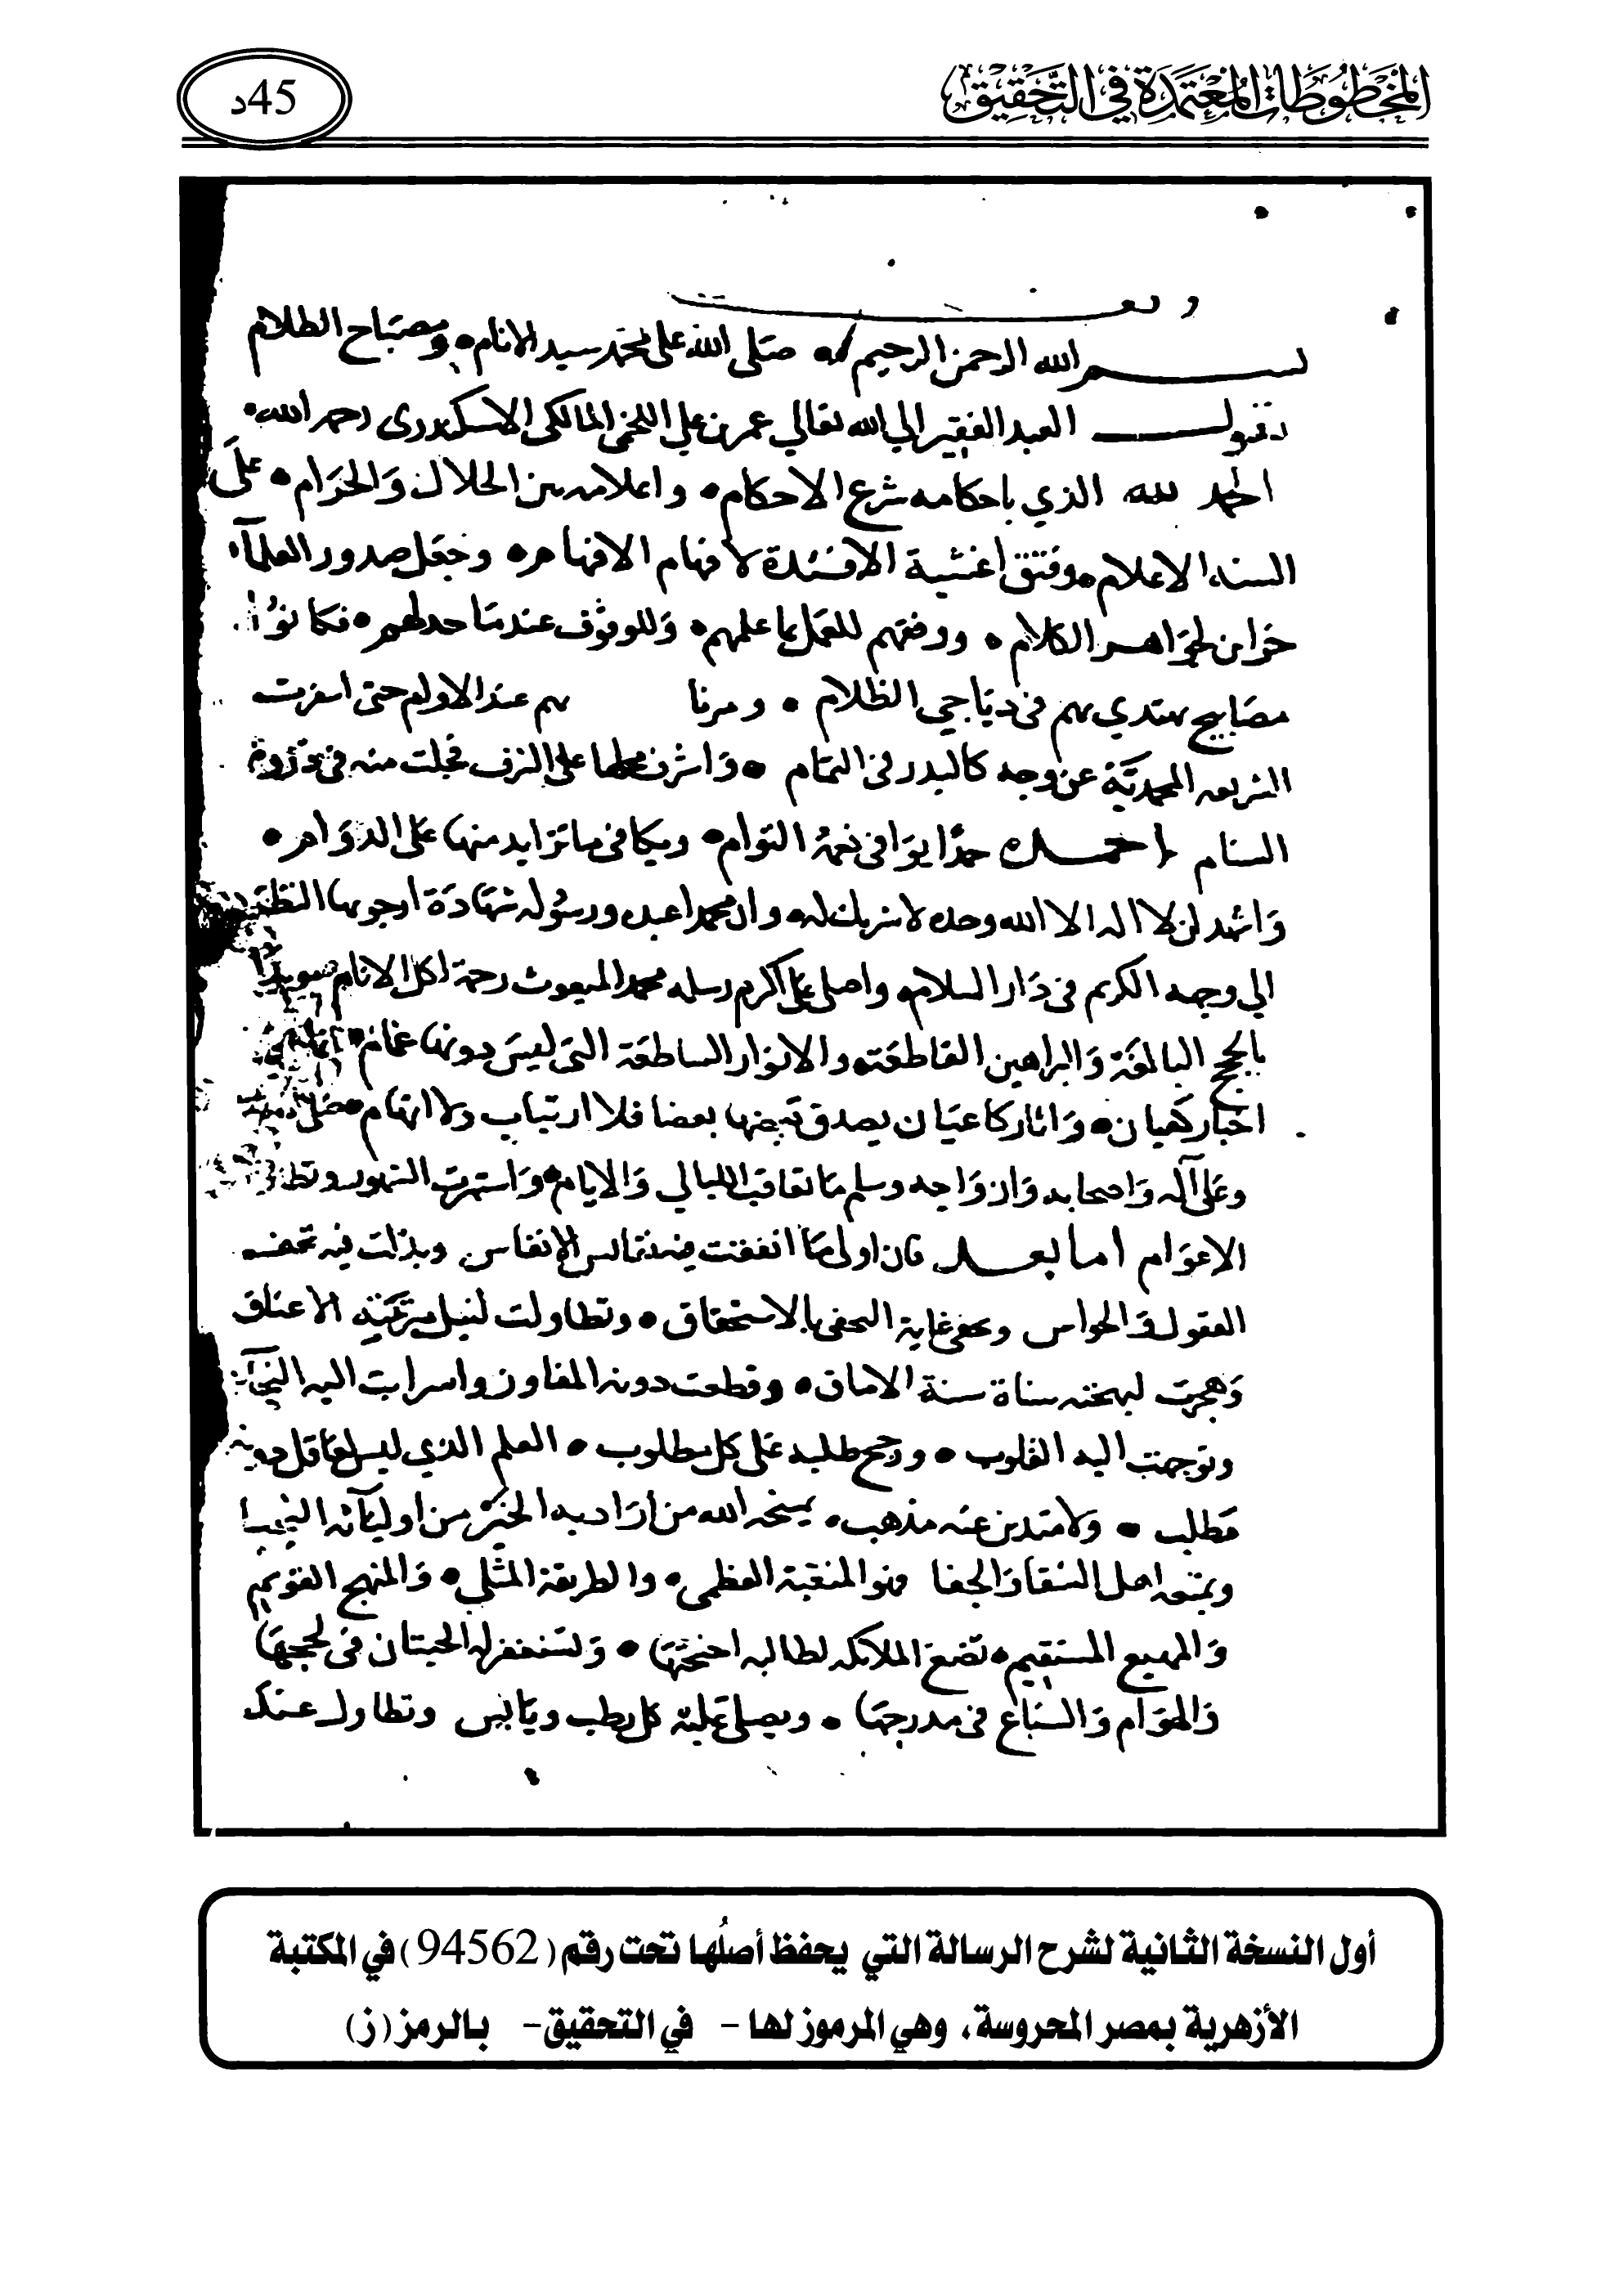 المخطوطات المعتمدة في التحقيق
45د
بسم الله الرحمن الرحيم صلى الله على محمد سيد الانام ومصباح الظلام
يقول العبد الفقير الي الله تعالي عمر بن علي اللخمي المالكي الاسكندري رحمه الله
الحمد لله الذي باحكامه شرع الاحكام واعلامه بين الحلال وَالحرَام علَى
السنة الاعلام وفتق اغشية الافئدة لافهام الافهام وجعَل صدور العلمآء
خزاين لجوَاهر الكلام ووفقهم للعمل بما علمهم وَللوقوف عندمَا حد لهم فكانوُا
مصَابيح يهتدي بهم فى ديَاجي الظلام بهم عند الاولم حتى اسفرت
الشريعه المحمديَّة عن وجه كالبدر فى التمَام وَاشرف على الشرف فجلت منه فى ذروة
السنام احمده حمدًا يوَافى نعمهُ التوام ويكافى ما تزايد منها علَى الدوَام
وَاشهد ان لا اله الا الله وحده لا شريك له وان محمدا عبده ورسُوله شهَادَة ارجو بها النظَر
الي وجهه الكريم فى دَار السلام واصلي علَى اكرم رسله محمد المبعوث رحمة لكل الانام مويدًا
بالحجج البالغَة وَالبراهين القاطعَة والانوَار الساطعَة التى ليسَ دونها غمَام
اخبار كعيان وَاثار كاعيَان يصدق بَعضها بعضا فلا ارتياب ولا اتهَام صَلى
وعَلى آله وَاصحابه وَازوَاجه وسلم مَا تعاقبَ الليالي وَالايام وَاستمرت الشهور
الاعوَام امابعد فان اولى مَا انفقت فيه نفائس الانفاس وبذلت فيه
العقول وَالحواس بالاستحقاق وتطاولت لنيل الاعناق
وَهجرت سنة الاماق وقطعت دونه المفاوز واسرابت اليه
وتوجهت اليه القلوب ورجح طلبه علَى كل مطلوب العلم الذي ليس لعَاقل دونه
مَطلب وَلا متدين عنه مذهب يمنحه الله من ارَاد به الخيَر من اوليَآئه
ويمنعه اهل الشقا وَالجفا فهو المنقبة العظمى والطريقة المثلي وَالمنهج القويم
وَالمهيع المستقيم تضَع الملائكة لطالبه اجنحتهَا وَتستغفر له الحيتان فى لججهَا
وَالهوَام وَالسبَاع فى مدرجهَا ويصلي عَليه كل رطب ويَابس وتطاول عندك
أول النسخة الثانية لشرح الرسالة التي يحفظ أصلُها تحت رقم (94562) في المكتبة
الأزهرية بمصر المحروسة، وهي المرموز لها - في التحقيق - بالرمز (ز)